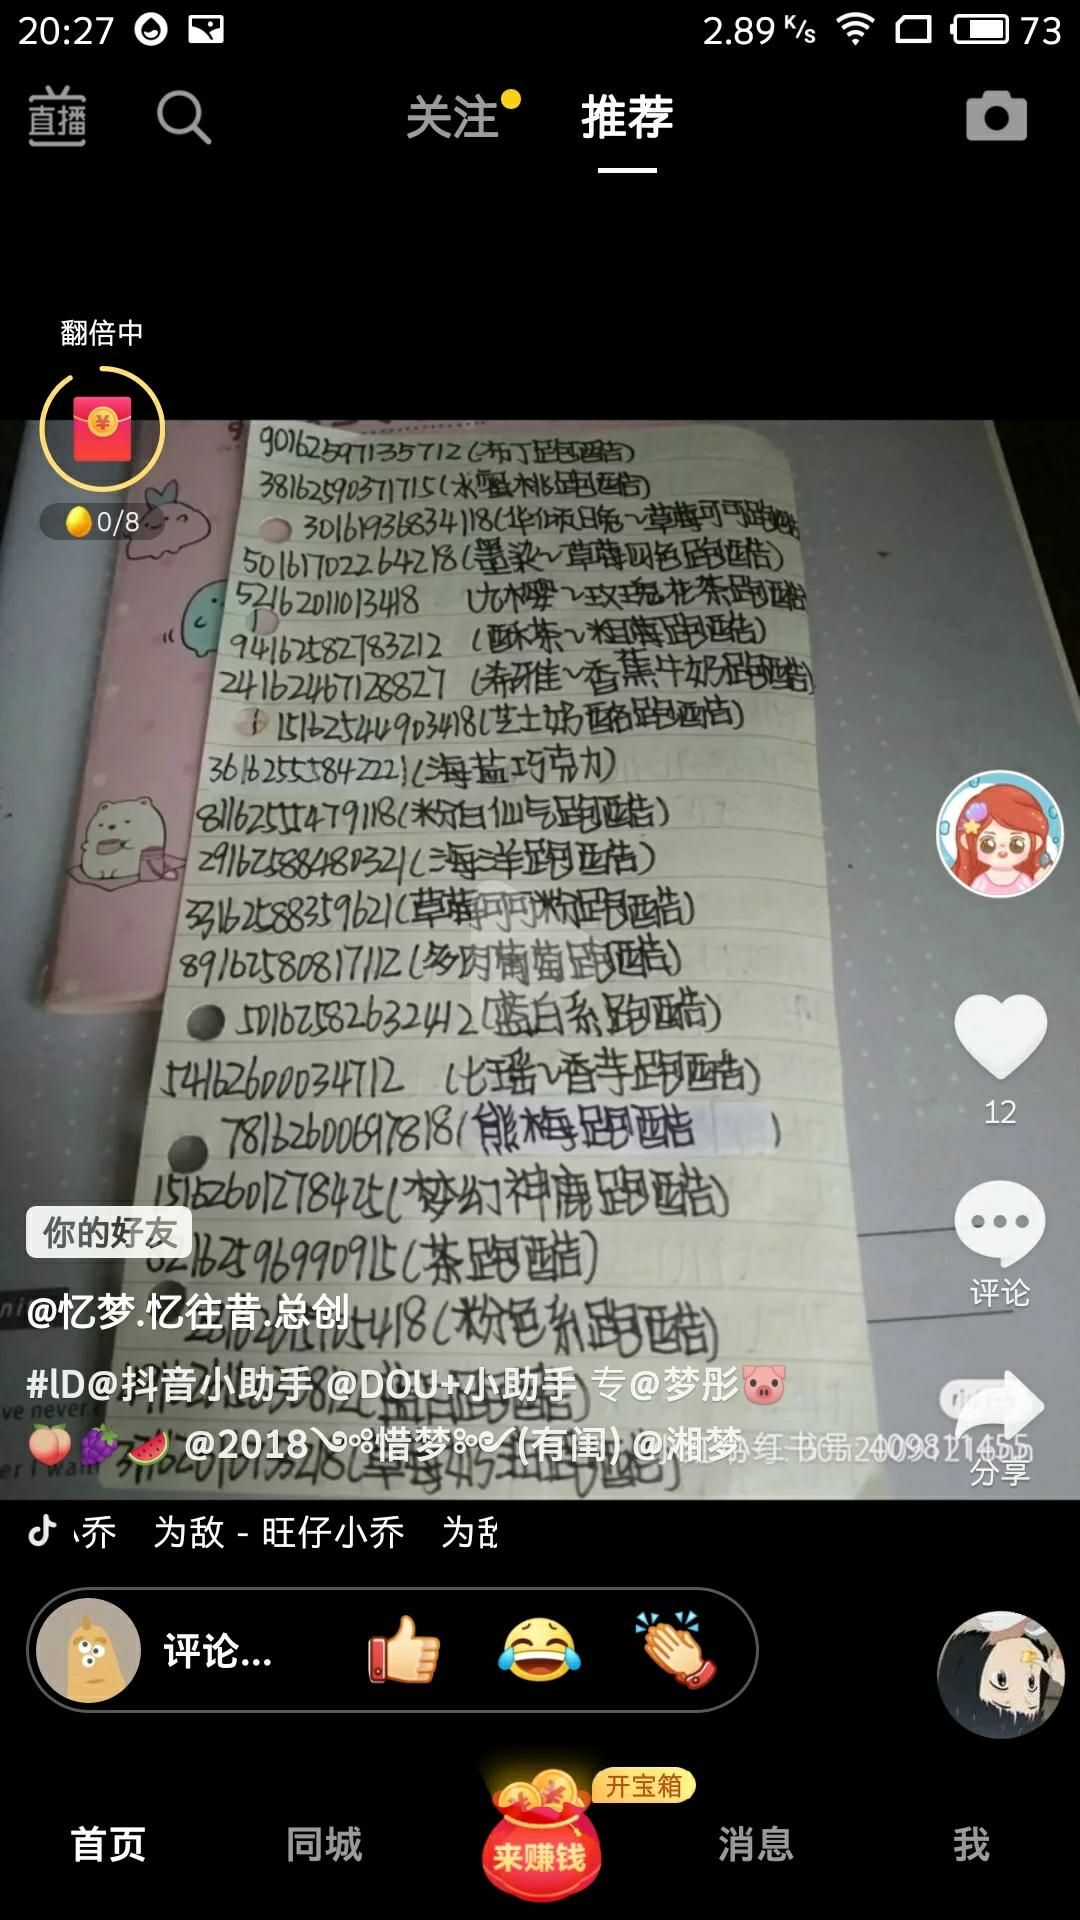 20:27
2.89 K/s
73
直播
关注
推荐
翻倍中
0/8
90162597135712(布丁跑酷)
38162590371715(水蜜桃跑酷)
30161936834118(华仔末日兔~草莓可可跑酷
50161702264218(墨染~草莓四色跑酷)
52162011013418 (九樱~玫瑰花茶跑酷
94162582783212 (酥茶~粉莓跑酷)
24162467128827 (希雅~香蕉牛奶跑酷)
15162544903418(芝士奶酪跑酷)
36162555842221(海盐巧克力)
81162555479118(粉白仙气跑酷)
29162588480321(海洋跑酷)
33162588359621(草莓可可粉跑酷)
89162580817112(多肉葡萄跑酷)
50162582632412(蓝白系跑酷)
54162600034712 (七瑶~香芋跑酷)
78162600697818(熊梅跑酷 )
15162601278425(梦幻神鹿跑酷)
162596990915(茶跑酷)
5418(粉色系跑酷)
12
评论
分享
你的好友
@忆梦.忆往昔.总创
#lD@抖音小助手 @DOU+小助手 专@梦彤🐷
🍑🍇🍉 @2018惜梦(有闺) @湘梦
小乔 为敌 - 旺仔小乔 为敌
评论...
开宝箱
来赚钱
首页
同城
消息
我